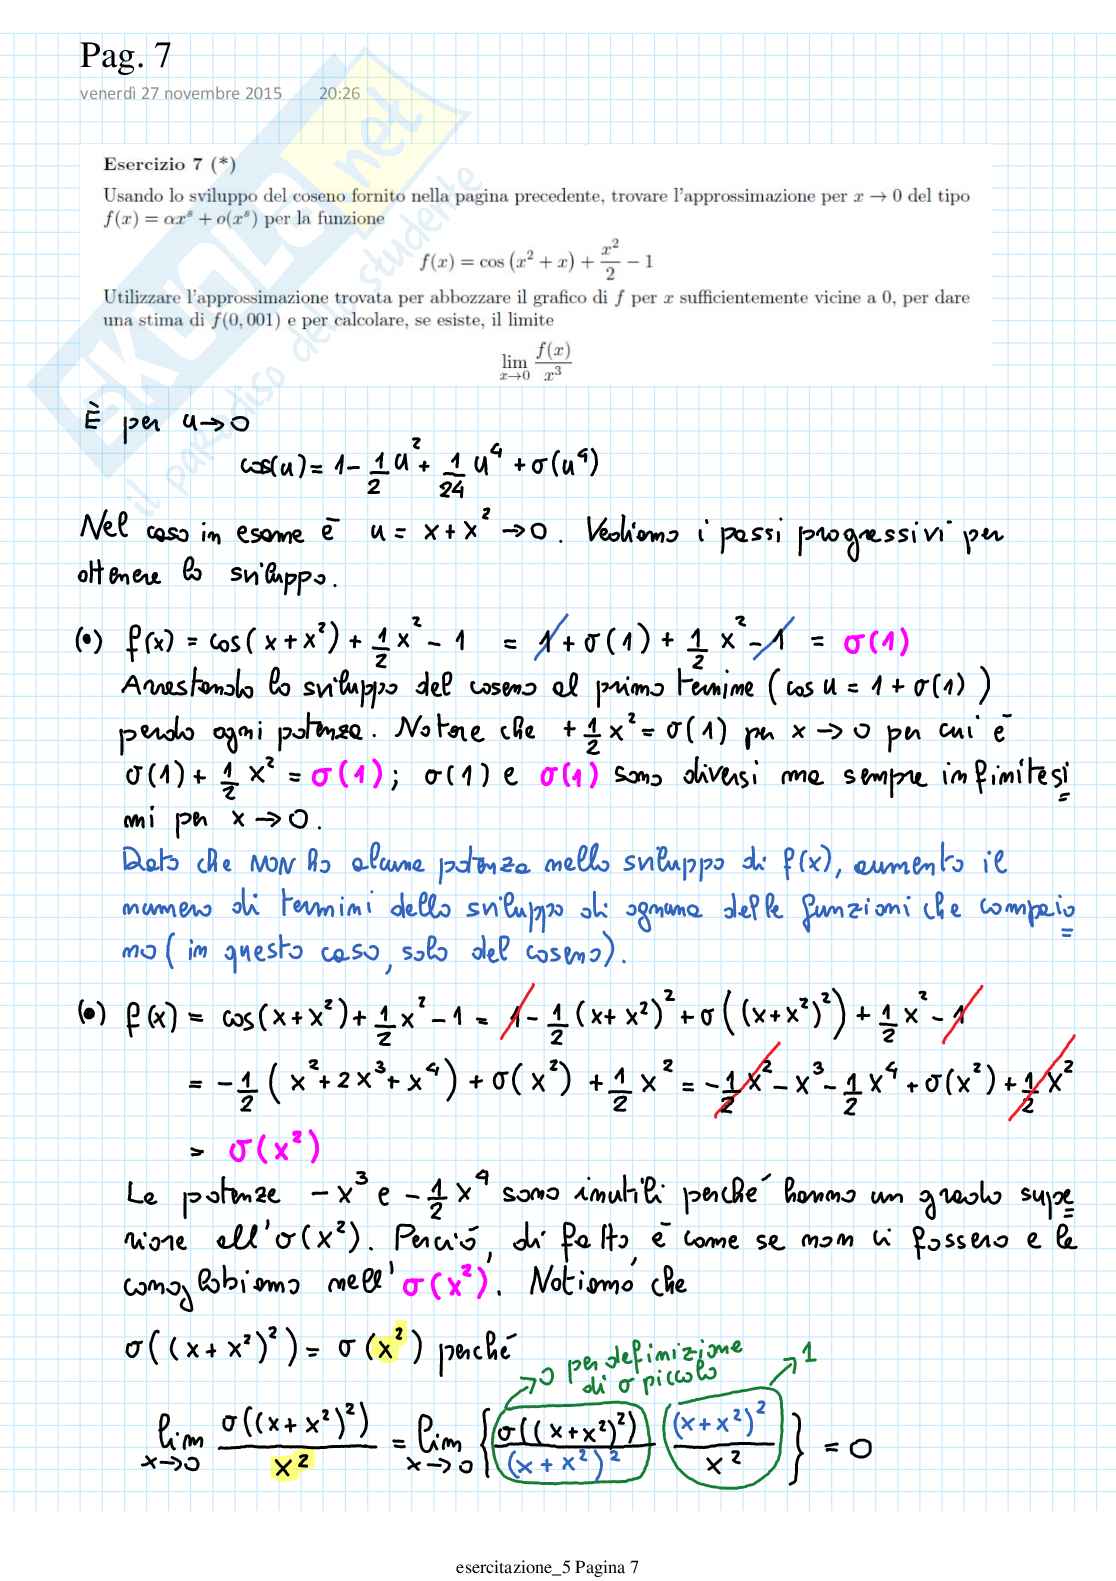 Pag. 7
venerdì 27 novembre 2015 20:26
SKUOLA.net
il paradiso dello studente
Esercizio 7 (*)
Usando lo sviluppo del coseno fornito nella pagina precedente, trovare l'approssimazione per x → 0 del tipo
f(x) = αxˢ + o(xˢ) per la funzione
f(x) = cos (x² + x) + x²/2 − 1
Utilizzare l'approssimazione trovata per abbozzare il grafico di f per x sufficientemente vicine a 0, per dare
una stima di f(0,001) e per calcolare, se esiste, il limite
lim x→0 f(x)/x³
È per u→0
cos(u) = 1 − 1/2 u² + 1/24 u⁴ + σ(u⁴)
Nel caso in esame è u = x + x² → 0. Vediamo i passi progressivi per
ottenere lo sviluppo.
(•) f(x) = cos(x + x²) + 1/2 x² − 1 = 1 + σ(1) + 1/2 x² − 1 = σ(1)
Arrestando lo sviluppo del coseno al primo termine (cos u = 1 + σ(1))
perdo ogni potenza. Notare che + 1/2 x² = σ(1) per x → 0 per cui è
σ(1) + 1/2 x² = σ(1); σ(1) e σ(1) sono diversi ma sempre infinitesi
mi per x → 0.
Dato che NON ho alcuna potenza nello sviluppo di f(x), aumento il
numero di termini dello sviluppo di ognuna delle funzioni che compaio
no (in questo caso, solo del coseno).
(•) f(x) = cos(x + x²) + 1/2 x² − 1 = 1 − 1/2 (x + x²)² + σ((x + x²)²) + 1/2 x² − 1
= − 1/2 (x² + 2x³ + x⁴) + σ(x²) + 1/2 x² = − 1/2 x² − x³ − 1/2 x⁴ + σ(x²) + 1/2 x²
= σ(x²)
Le potenze − x³ e − 1/2 x⁴ sono inutili perché hanno un grado supe
riore all'σ(x²). Perciò, di fatto, è come se non ci fossero e le
conglobiamo nell'σ(x²). Notiamo che
σ((x + x²)²) = σ(x²) perché
→ 0 per definizione
di σ piccolo
→ 1
lim x→0 σ((x + x²)²)/x² = lim x→0 { σ((x + x²)²)/(x + x²)² (x + x²)²/x² } = 0
esercitazione_5 Pagina 7